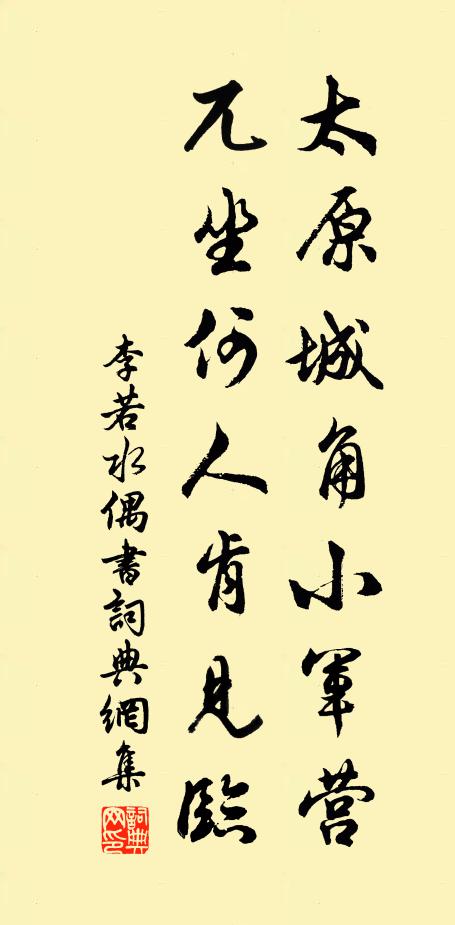 太原城角小軍营
兀坐何人肯見臨
李若水偶書詞典網集
詞典网印